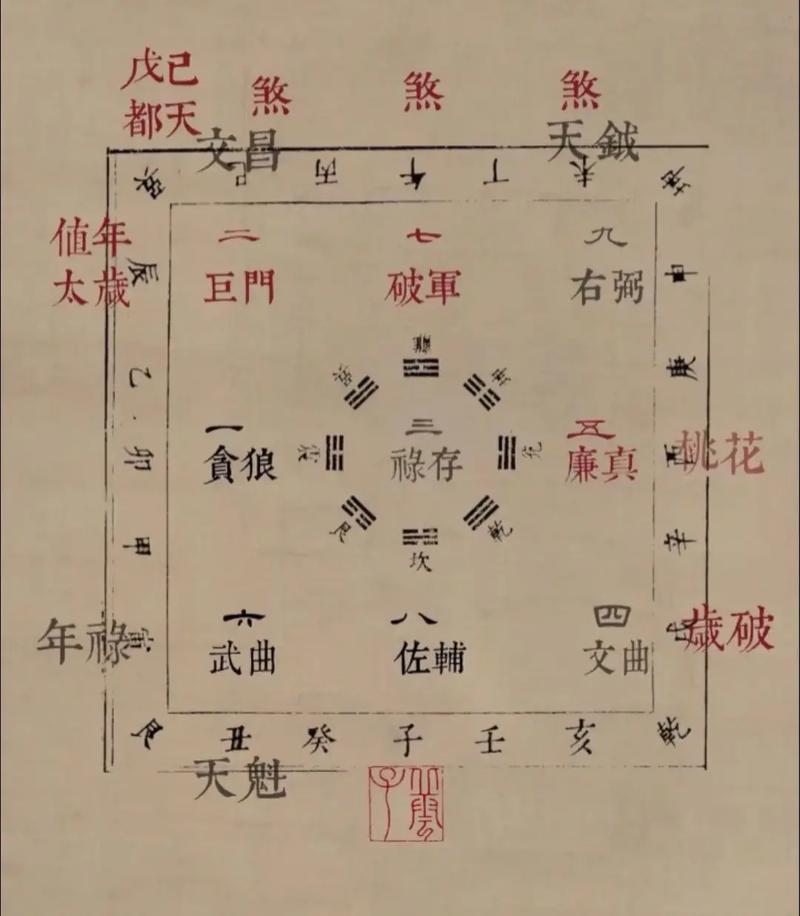 戊己 煞 煞 煞
都天
文昌 天鉞
巽 巳 丙 午 丁 未 坤
值年
太歲
辰 申
二 七 九
巨門 破軍 右弼
離
乙 巽 坤 庚
一 三 五
貪狼 祿存 廉真
卯 震 兌 酉 桃花
艮 乾
甲 坎 辛
六 八 四
武曲 佐輔 文曲
年祿 寅 戌 歲破
艮 丑 癸 子 壬 亥 乾
天魁